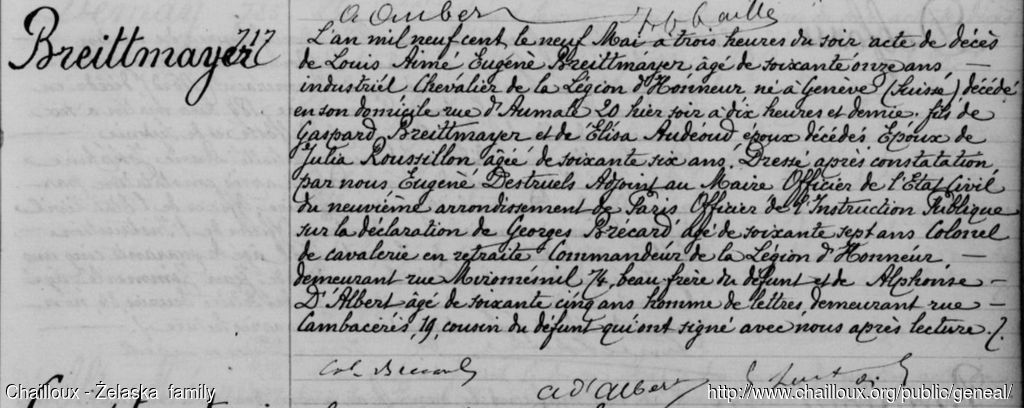 Breittmayer
717
L'an mil neuf cent le neuf Mai à trois heures du soir acte de décès
de Louis Aimé Eugène Breittmayer âgé de soixante onze ans, —
industriel Chevalier de la Légion d'Honneur né à Genève (Suisse) décédé
en son domicile rue d'Aumale 20 hier soir à dix heures et demie. fils de
Gaspard Breittmayer et de Elisa Audéoud époux décédés. Epoux de
Julia Roussillon âgée de soixante six ans. Dressé après constatation
par nous Eugène Destruels Adjoint au Maire Officier de l'Etat Civil
du neuvième arrondissement de Paris Officier de l'Instruction Publique
sur la déclaration de Georges Brécard âgé de soixante sept ans Colonel
de cavalerie en retraite Commandeur de la Légion d'Honneur —
demeurant rue Miromésnil 74, beau frère du défunt et de Alphonse —
D'Albert âgé de soixante cinq ans homme de lettres, demeurant rue —
Cambacérès, 19, cousin du défunt qui ont signé avec nous après lecture. /.
Col Brecard
a d'albert
Chailloux - Żelaska family
http://www.chailloux.org/public/geneal/